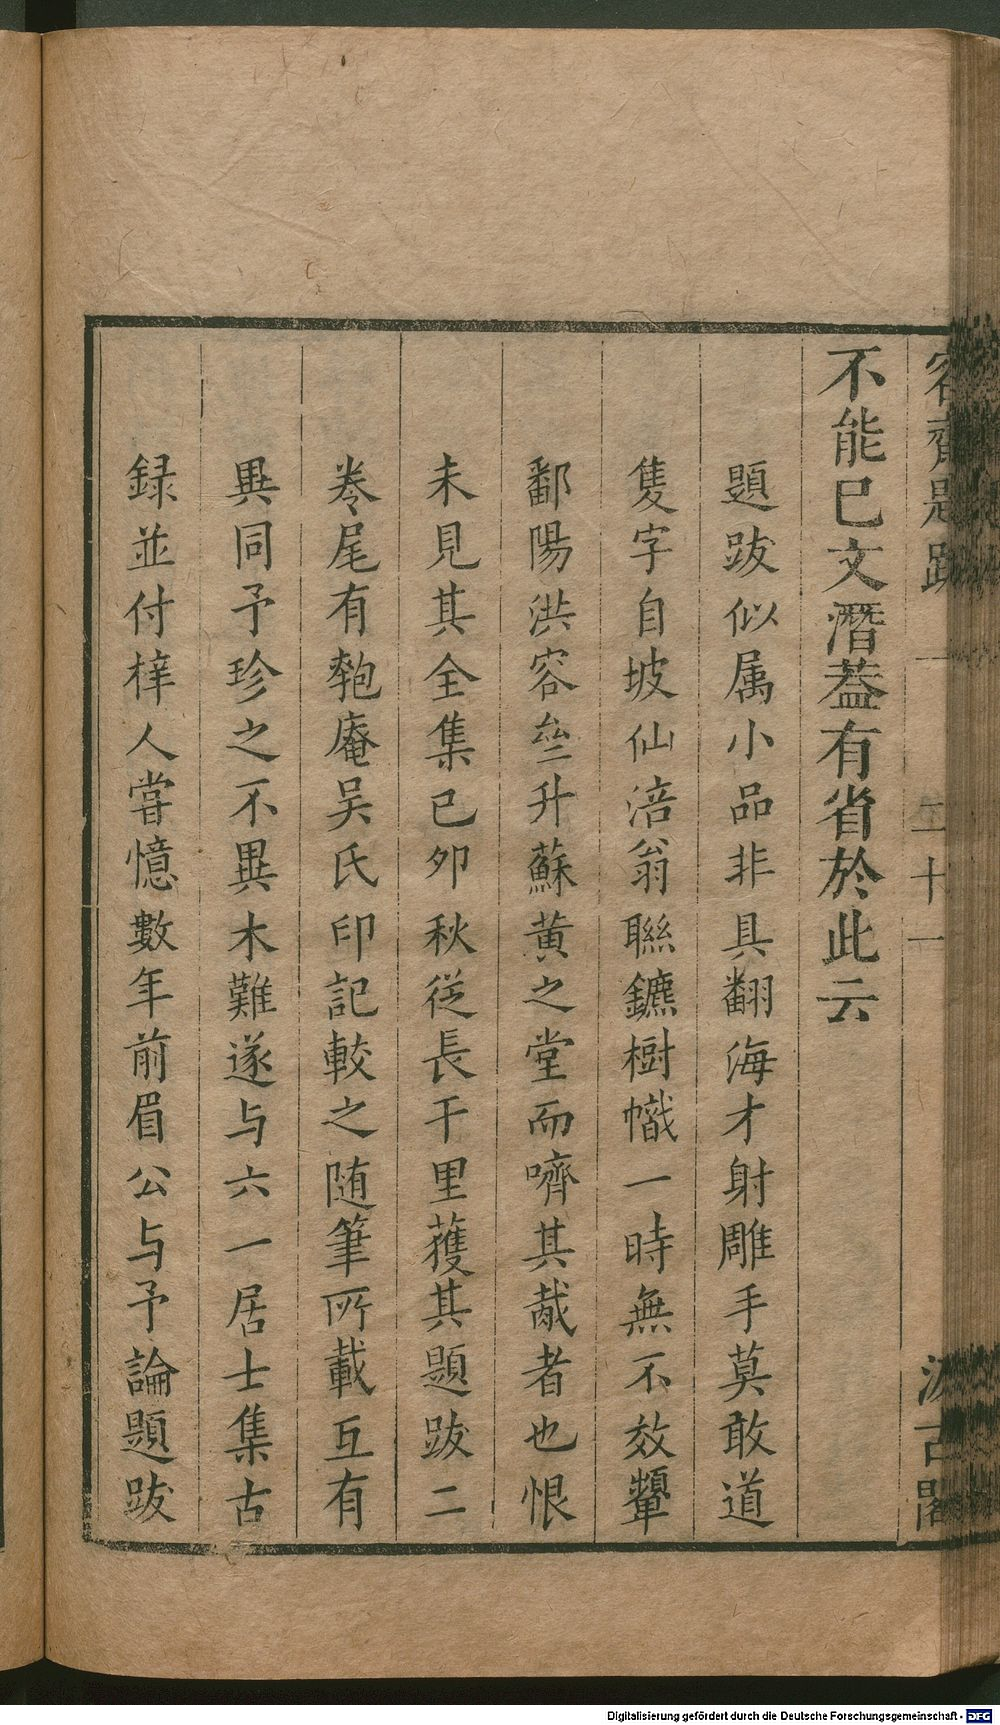 容齋題跋 一 二十一 汲古閣
不能已文潛葢有省於此云
題跋似属小品非具翻海才射雕手莫敢道
隻字自坡仙涪翁聯鑣樹幟一時無不效顰
鄱陽洪容㙜升蘇黄之堂而嚌其胾者也恨
未見其全集己夘秋從長干里獲其題跋二
卷尾有匏庵吴氏印記較之随筆所載互有
異同予珍之不異木難遂与六一居士集古
録並付梓人嘗憶數年前眉公与予論題跋
Digitalisierung gefördert durch die Deutsche Forschungsgemeinschaft - DFG